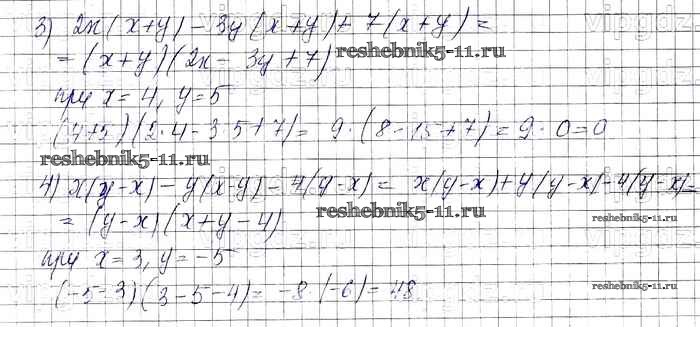 3) 2x(x+y) - 3y(x+y) + 7(x+y) =
= (x+y)(2x - 3y + 7)
reshebnik5-11.ru
при x = 4, y = 5
(4+5)(2·4 - 3·5 + 7) = 9·(8 - 15 + 7) = 9·0 = 0
reshebnik5-11.ru
4) x(y-x) - y(x-y) - 4(y-x) = x(y-x) + y(y-x) - 4(y-x) =
= (y-x)(x+y-4)
reshebnik5-11.ru
reshebnik5-11.ru
при x = 3, y = -5
(-5-3)(3-5-4) = -8·(-6) = 48
reshebnik5-11.ru